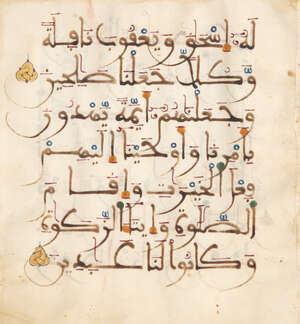 لَهُ إِسْحَٰقَ وَيَعْقُوبَ نَافِلَةً
وَكُلًّا جَعَلْنَا صَٰلِحِينَ
وَجَعَلْنَٰهُمْ أَئِمَّةً يَهْدُونَ
بِأَمْرِنَا وَأَوْحَيْنَا إِلَيْهِمْ
فِعْلَ الْخَيْرَٰتِ وَإِقَامَ
الصَّلَوٰةِ وَإِيتَاءَ الزَّكَوٰةِ
وَكَانُوا لَنَا عَٰبِدِينَ